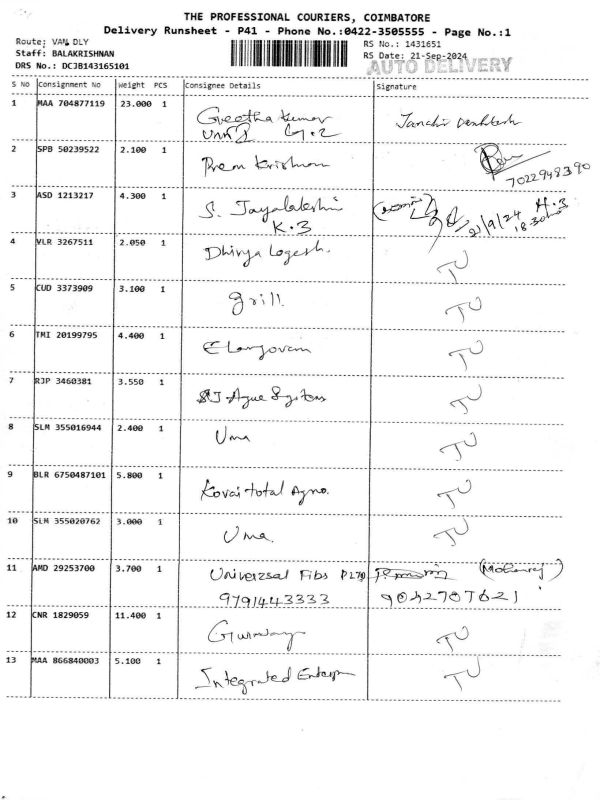 THE PROFESSIONAL COURIERS, COIMBATORE
Delivery Runsheet - P41 - Phone No.:0422-3505555 - Page No.:1
Route: VAN DLY
RS No.: 1431651
Staff: BALAKRISHNAN
RS Date: 21-Sep-2024
DRS No.: DCJB143165101
AUTO DELIVERY
S No Consignment No Weight PCS Consignee Details Signature
1 MAA 704877119 23.000 1 Geetha Kumar
2
2 SPB 50239522 2.100 1 Prem Krishnan
7022948390
3 ASD 1213217 4.300 1 S. Jayalakshmi H.3
K.3 21/9/24
4 VLR 3267511 2.050 1 Dhivya Logesh. TU
5 CUD 3373909 3.100 1 grill. TU
6 TMI 20199795 4.400 1 Elangovan TU
7 RJP 3460381 3.550 1 SJ Aque Systems TU
8 SLM 355016944 2.400 1 Uma TU
9 BLR 6750487101 5.800 1 Kovai total Agno. TU
10 SLM 355020762 3.000 1 Uma. TU
11 AMD 29253700 3.700 1 Universal Fibs (Mohanraj)
9791443333 9042787621
12 CNR 1829059 11.400 1 TU
13 MAA 866840003 5.100 1 Integrated Enterp TU